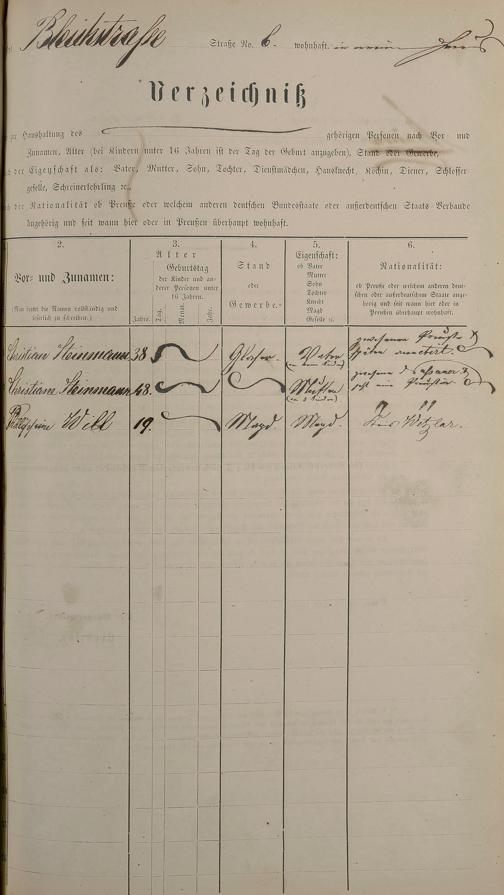 Bleichstraße Straße No. 6. wohnhaft. in
Verzeichniß
zur Haushaltung des gehörigen Personen nach Vor- und
Zunamen, Alter (bei Kindern unter 16 Jahren ist der Tag der Geburt anzugeben), Stand oder Gewerbe,
nach der Eigenschaft als: Vater, Mutter, Sohn, Tochter, Dienstmädchen, Hausknecht, Köchin, Diener, Schlosser
geselle, Schreinerlehrling ꝛc.,
nach der Nationalität ob Preuße oder welchem anderen deutschen Bundesstaate oder außerdeutschen Staats-Verbande
angehörig und seit wann hier oder in Preußen überhaupt wohnhaft.
2. 3. 4. 5. 6.
Vor- und Zunamen:
(Man bittet die Namen vollständig und
leserlich zu schreiben.)
Alter
Geburtstag
der Kinder und an-
derer Personen unter
16 Jahren.
Jahre. Tag. Monat. Jahr.
Stand
oder
Gewerbe.
Eigenschaft:
ob Vater
Mutter
Sohn
Tochter
Knecht
Magd
Geselle ꝛc.
Nationalität:
ob Preuße oder welchem anderen deut-
schen oder außerdeutschen Staate ange-
hörig und seit wann hier oder in
Preußen überhaupt wohnhaft.
Christian Steinmann 38 Glaser. Vater
Christiane Steinmann 48. Mutter
Will 19. Magd. Magd. Aus Wetzlar.